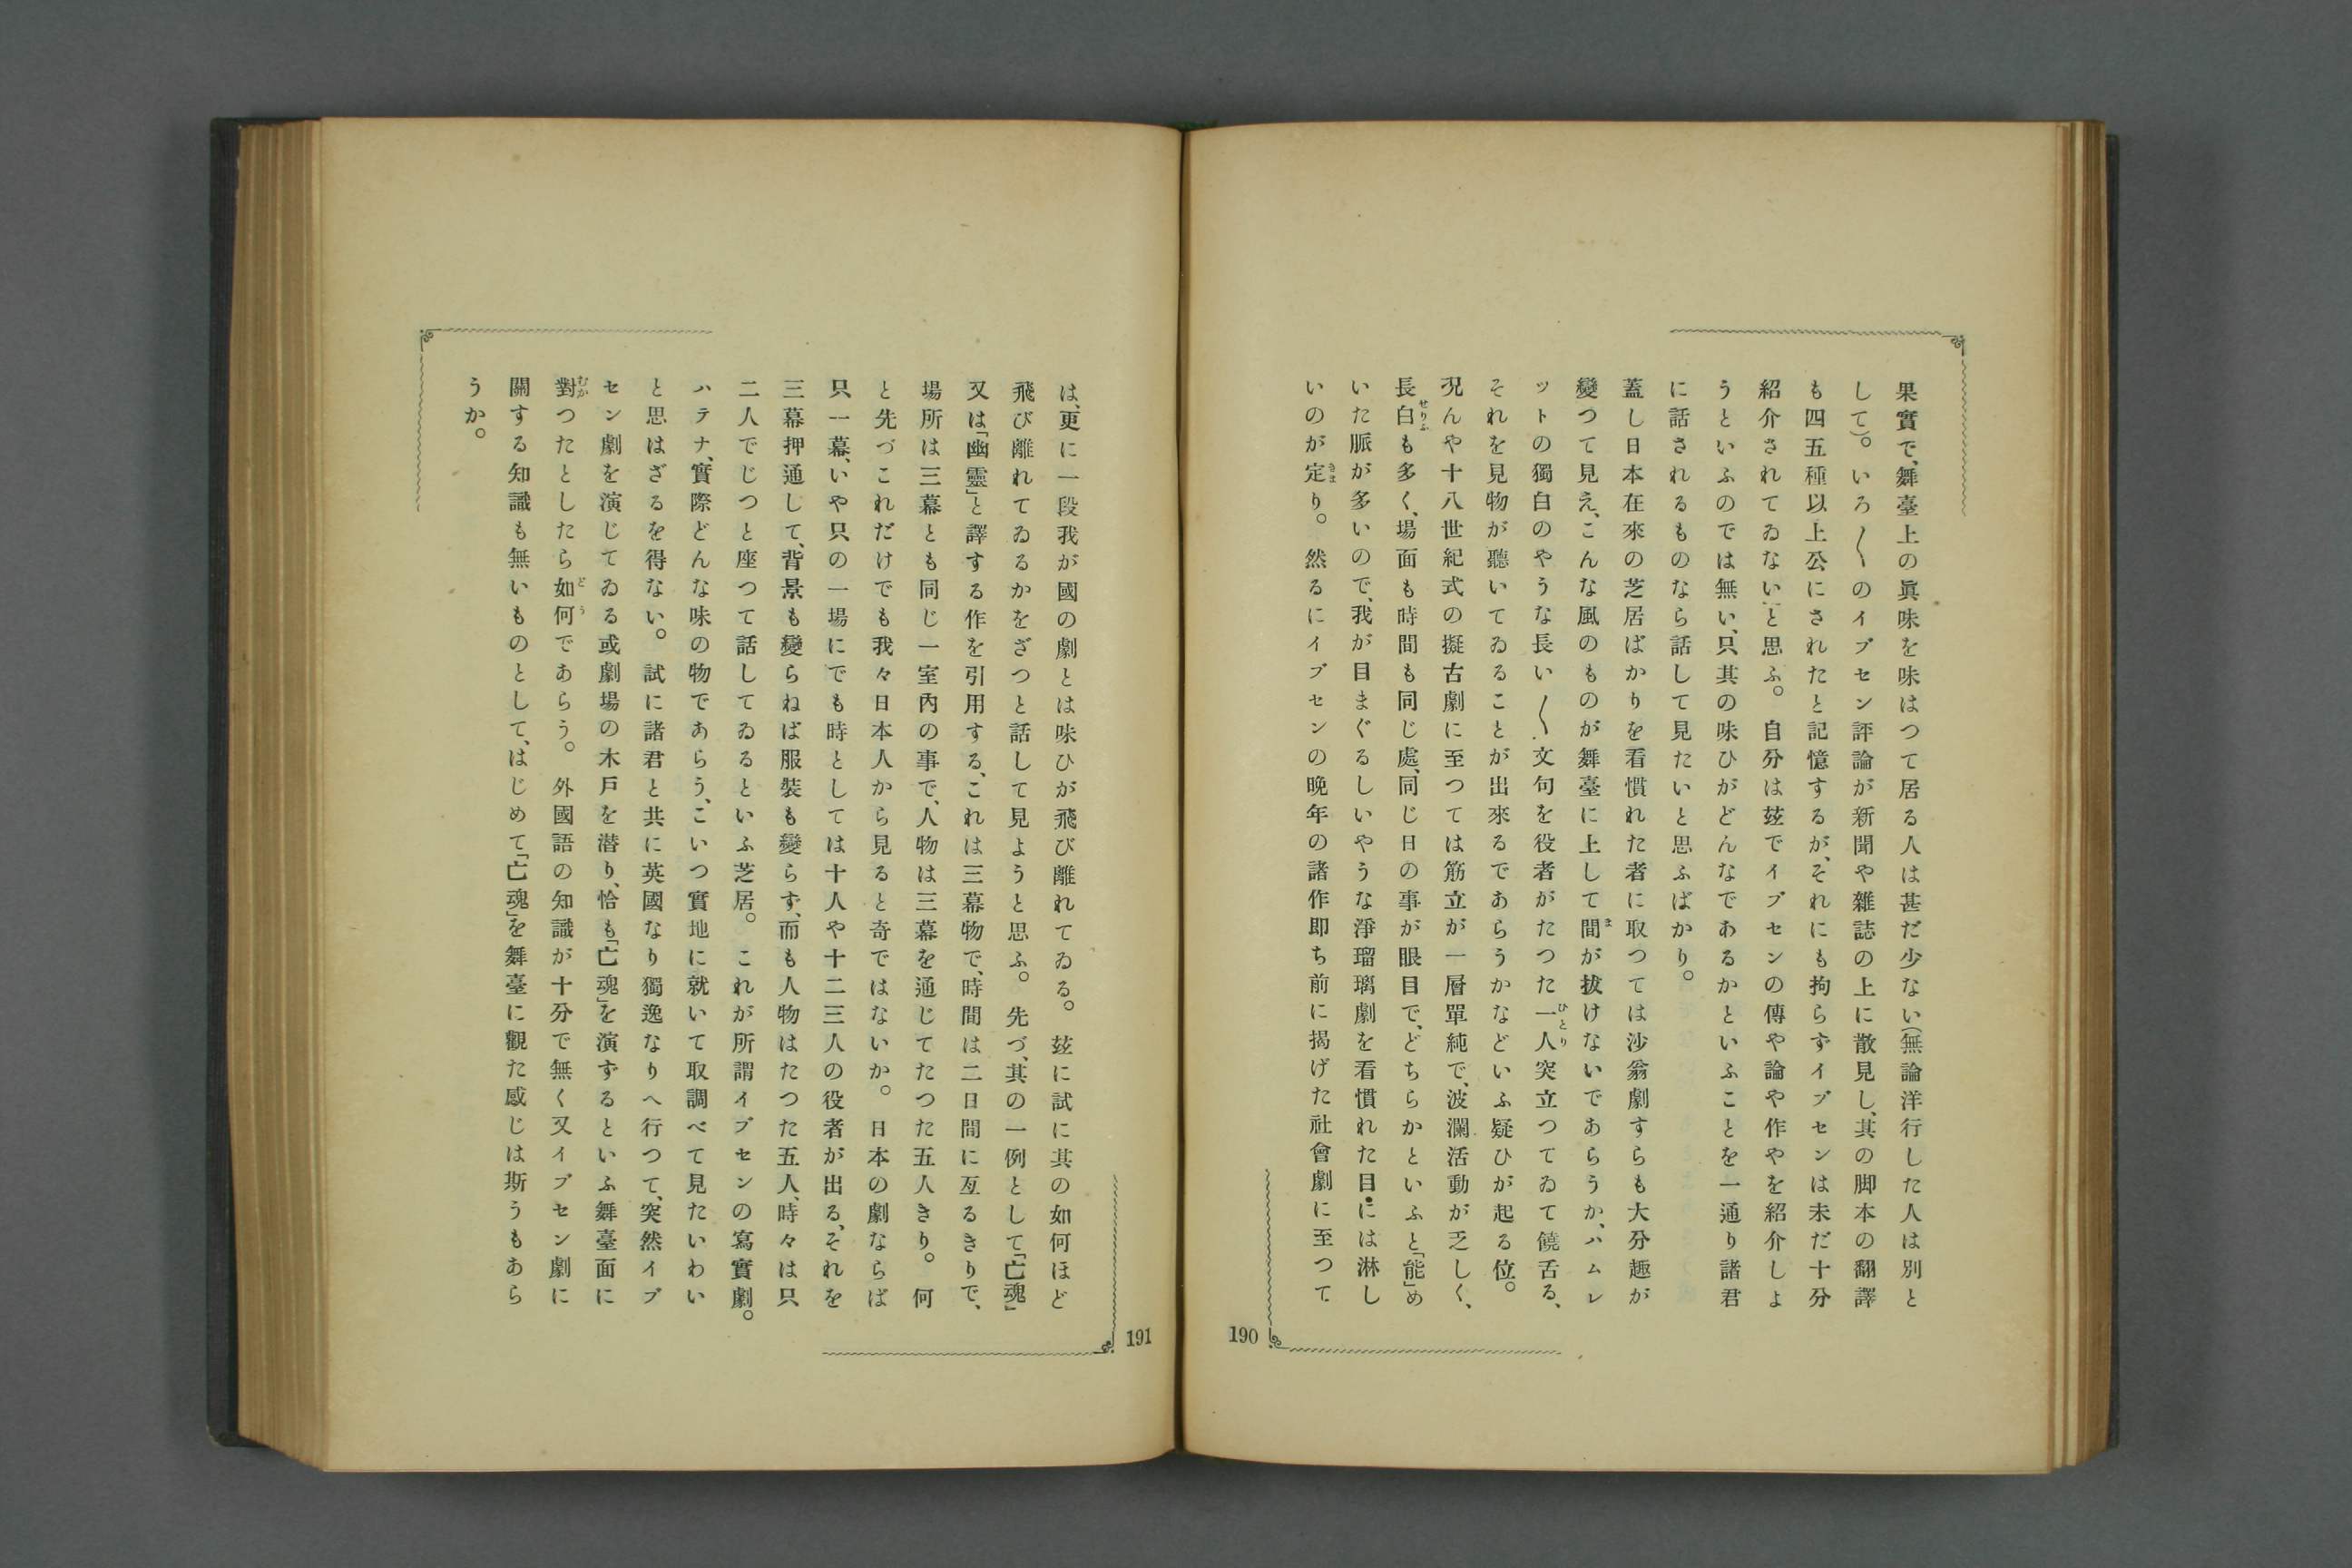 果實で、舞臺上の眞味を味はつて居る人は甚だ少ない(無論洋行した人は別と
して)。いろ〱のイプセン評論が新聞や雜誌の上に散見し、其の脚本の翻譯
も四五種以上公にされたと記憶するが、それにも拘らずイプセンは未だ十分
紹介されてゐないと思ふ。自分は玆でイプセンの傳や論や作やを紹介しよ
うといふのでは無い、只其の味ひがどんなであるかといふことを一通り諸君
に話されるものなら話して見たいと思ふばかり。
蓋し日本在來の芝居ばかりを看慣れた者に取つては沙翁劇すらも大分趣が
變つて見え、こんな風のものが舞臺に上して間が拔けないであらうか、ハムレ
ットの獨白のやうな長い〱文句を役者がたつた一人突立つてゐて饒舌る、
それを見物が聽いてゐることが出來るであらうかなどいふ疑ひが起る位。
况んや十八世紀式の擬古劇に至つては筋立が一層單純で、波瀾活動が乏しく、
長白も多く、場面も時間も同じ處、同じ日の事が眼目で、どちらかといふと「能」め
いた脈が多いので、我が目まぐるしいやうな淨瑠璃劇を看慣れた目には淋し
いのが定り。然るにイプセンの晩年の諸作卽ち前に揭げた社會劇に至つて
190
は、更に一段我が國の劇とは味ひが飛び離れてゐる。玆に試に其の如何ほど
飛び離れてゐるかをざつと話して見ようと思ふ。先づ、其の一例として「亡魂」
又は「幽靈」と譯する作を引用する、これは三幕物で、時間は二日間に亙るきりで、
場所は三幕とも同じ一室內の事で、人物は三幕を通じてたつた五人きり。何
と先づこれだけでも我々日本人から見ると奇ではないか。日本の劇ならば
只一幕、いや只の一場にでも時としては十人や十二三人の役者が出る、それを
三幕押通して、背景も變らねば服裝も變らず、而も人物はたつた五人、時々は只
二人でじつと座つて話してゐるといふ芝居。これが所謂イプセンの寫實劇。
ハテナ、實際どんな味の物であらう、こいつ實地に就いて取調べて見たいわい
と思はざるを得ない。試に諸君と共に英國なり獨逸なりへ行つて、突然イプ
セン劇を演じてゐる或劇場の木戸を潜り、恰も「亡魂」を演ずるといふ舞臺面に
對つたとしたら如何であらう。外國語の知識が十分で無く又イプセン劇に
關する知識も無いものとして、はじめて「亡魂」を舞臺に觀た感じは斯うもあら
うか。
191